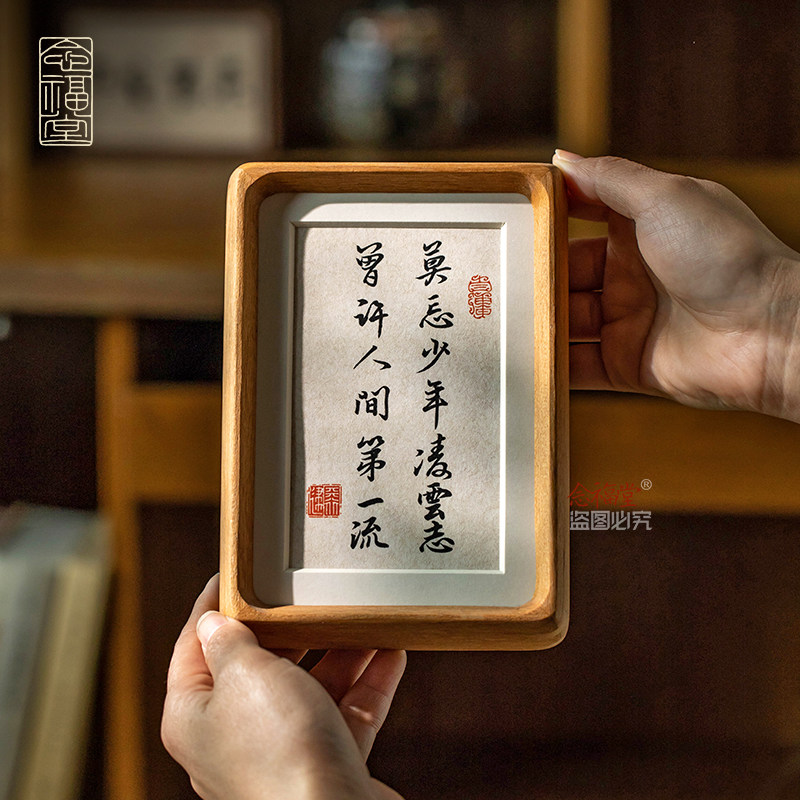 念福堂
莫忘少年凌雲志
曾许人間第一流
念福堂®
盗图必究